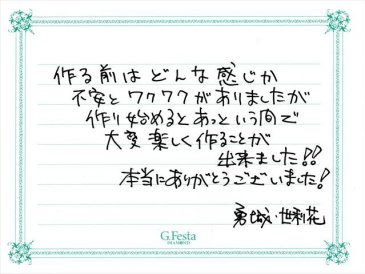 作る前はどんな感じか
不安とワクワクがありましたが
作り始めるとあっという間で
大変楽しく作ることが
出来ました!!
本当にありがとうございました!
勇城・世利花
G.Festa
DIAMOND